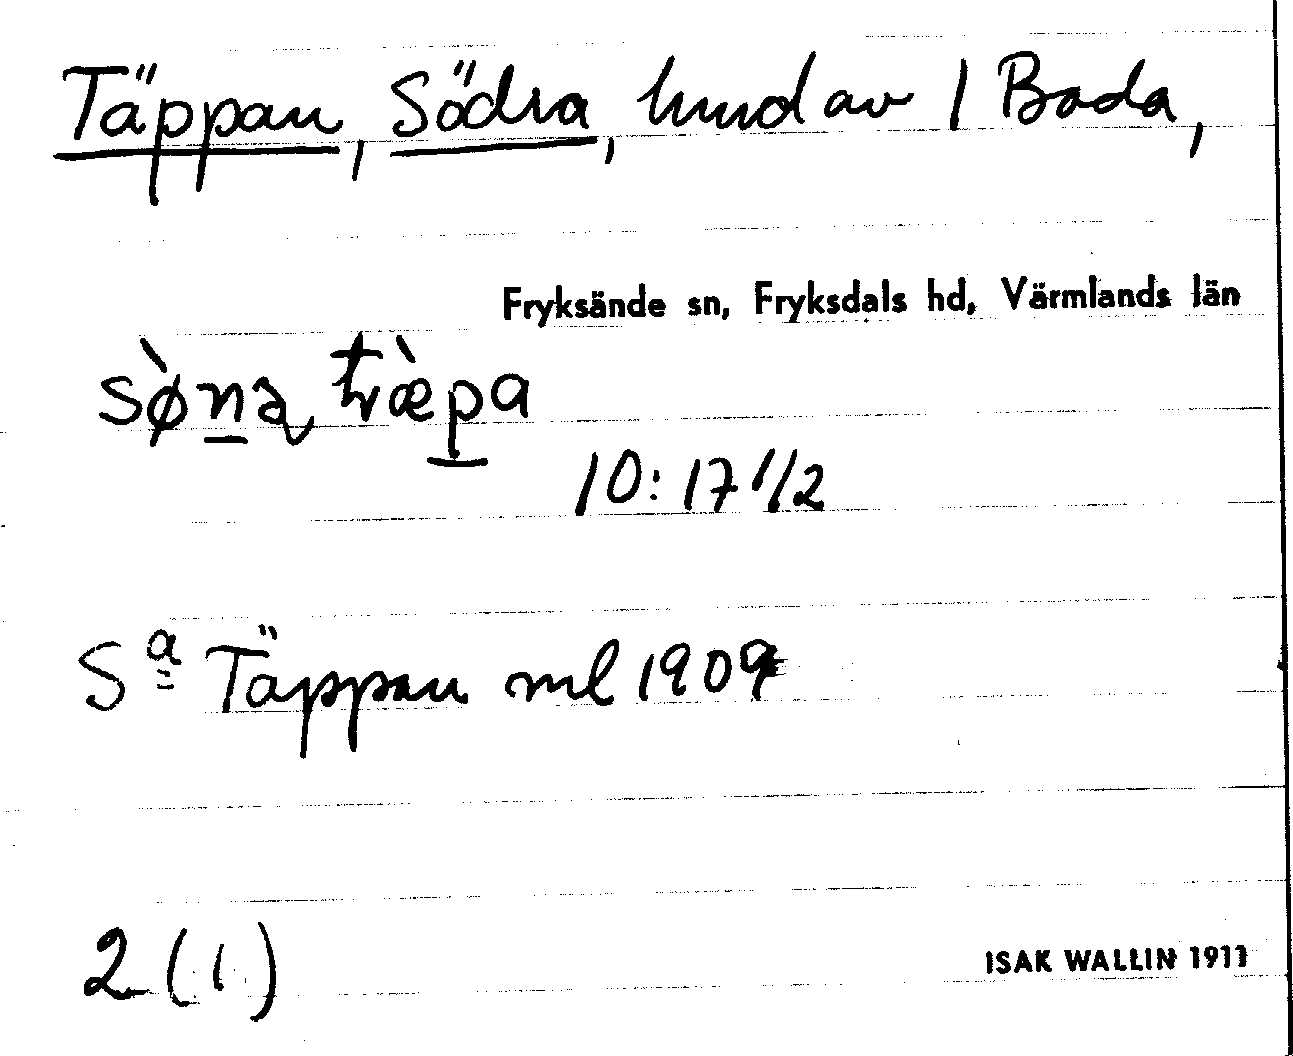 Täppan, Södra, hmd av 1 Bada,
Fryksände sn, Fryksdals hd, Värmlands län
10:17 1/2
Sª Täppan ml 1909
2 (1)
ISAK WALLIN 1911